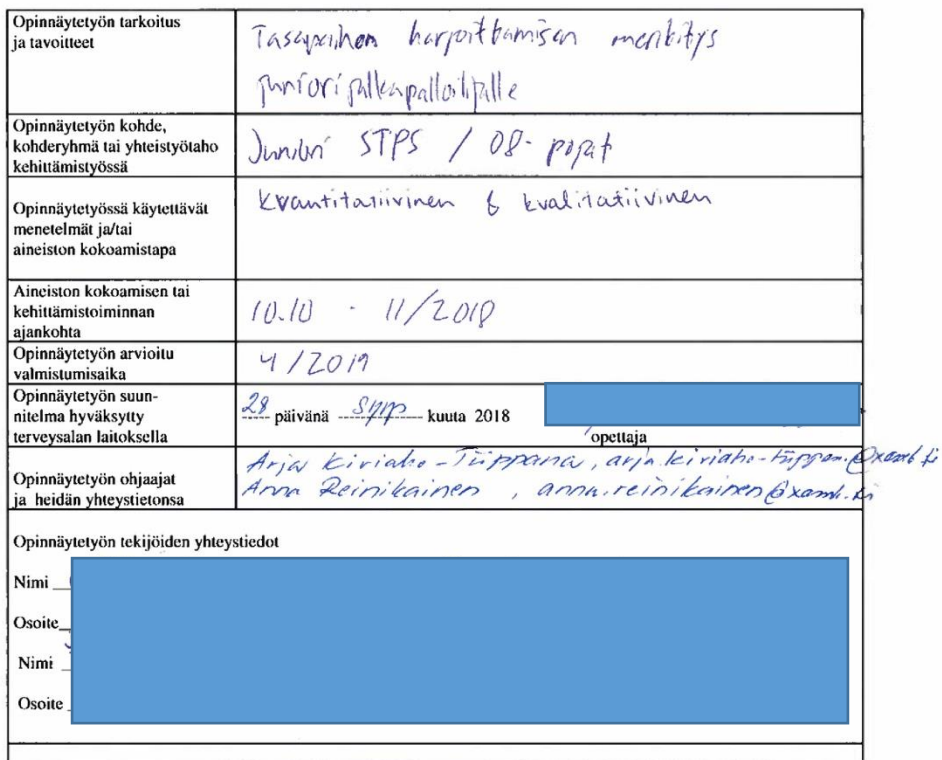 Opinnäytetyön tarkoitus
ja tavoitteet
Tasapainon harjoittamisen merkitys
juniorijalkapalloilijalle
Opinnäytetyön kohde,
kohderyhmä tai yhteistyötaho
kehittämistyössä
Juniori STPS / 08- pojat
Opinnäytetyössä käytettävät
menetelmät ja/tai
aineiston kokoamistapa
Kvantitatiivinen & kvalitatiivinen
Aineiston kokoamisen tai
kehittämistoiminnan
ajankohta
10.10 - 11/2018
Opinnäytetyön arvioitu
valmistumisaika
4/2019
Opinnäytetyön suun-
nitelma hyväksytty
terveysalan laitoksella
28 päivänä syys kuuta 2018
opettaja
Opinnäytetyön ohjaajat
ja heidän yhteystietonsa
Arja Kiviaho-Tiippana,
Anna Reinikainen, anna.reinikainen@xamk.fi
Opinnäytetyön tekijöiden yhteystiedot
Nimi
Osoite
Nimi
Osoite